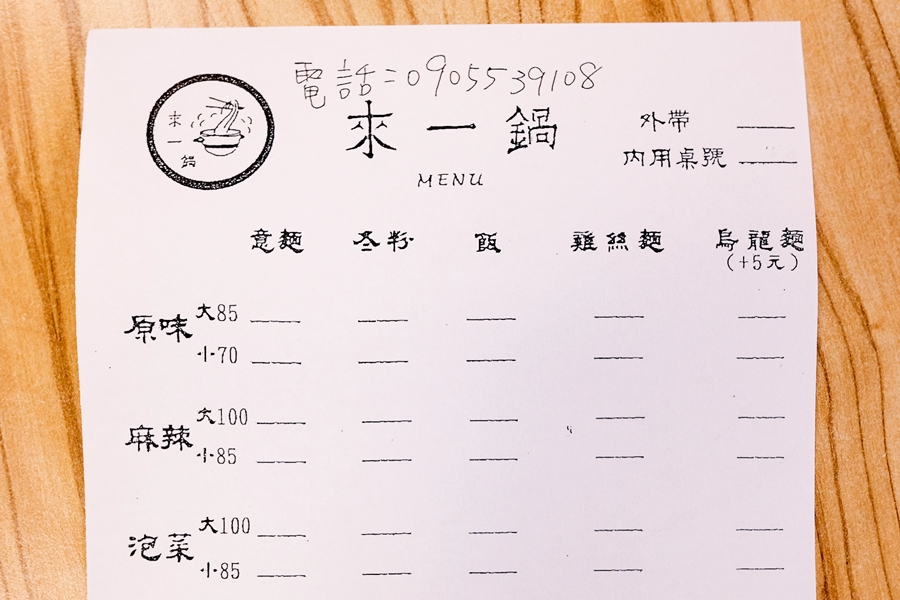 電話：0905539108
來一鍋
來一鍋
MENU
外帶
內用桌號
意麵 冬粉 飯 雞絲麵 烏龍麵
(+5元)
原味 大85
小70
麻辣 大100
小85
泡菜 大100
小85